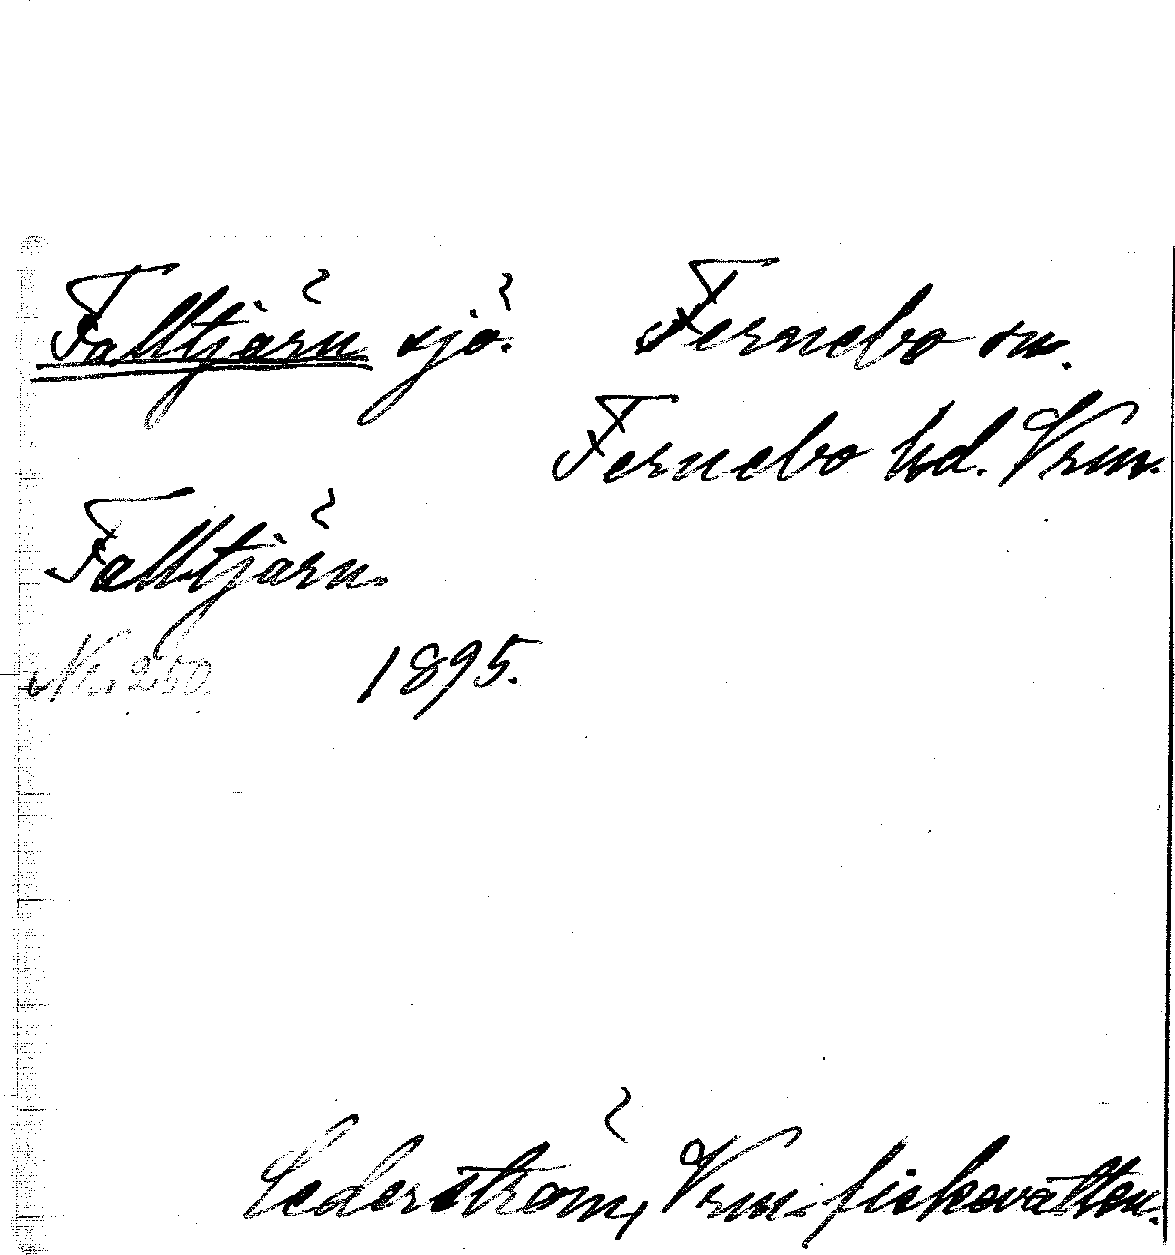 Falltjärn sjö. Fernebo sn.
Fernebo hd. Vrm.
Falltjärn.
Nr. 250. 1895.
Cederström, Vrm. fiskevatten.